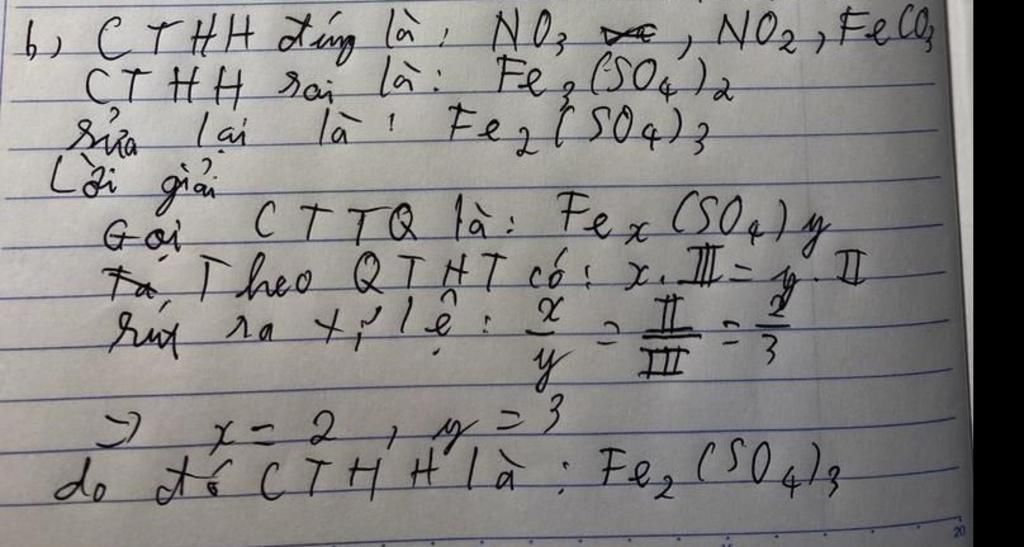 b, CTHH đúng là: NO₃, NO₂, FeCO₃
CTHH sai là: Fe₃(SO₄)₂
sửa lại là: Fe₂(SO₄)₃
Lời giải
Gọi CTTQ là: Feₓ(SO₄)y
Theo QTHT có: x. III = y. II
rút ra tỉ lệ: x/y = II/III = 2/3
=> x = 2, y = 3
do đó CTHH là: Fe₂(SO₄)₃
20